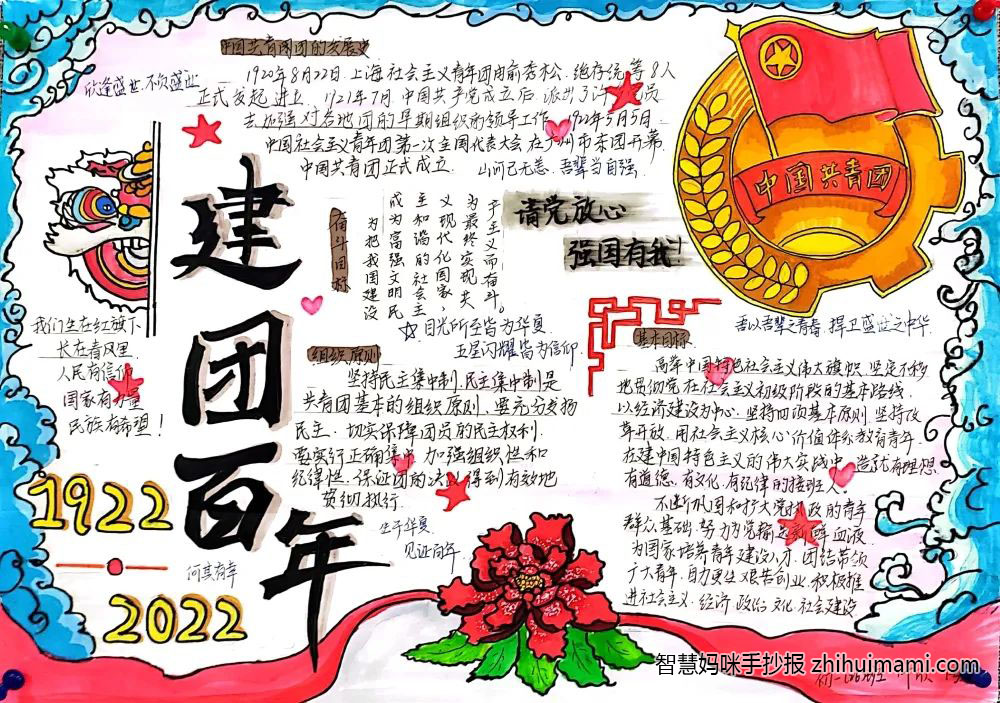 中国共青团团的发展史
欣逢盛世 不负盛世
1920年8月22日,上海社会主义青年团由俞秀松、
等8人
正式发起建立. 1921年7月,中国共产党成立后,派出了许
党员
去加强对各地团的早期组织的领导工作. 1922年5月5日,
中国社会主义青年团第一次全国代表大会在广州市东园开幕
中国共青团正式成立. 山河已无恙, 吾辈当自强
建团百年
奋斗目标
为把我国建设
成为富强文明民
主和谐的社会主
义现代化国家,
为最终实现共
产主义而奋斗。
请党放心
强国有我!
中国共青团
目光所至皆为华夏
五星闪耀皆为信仰
我们生在红旗下
长在春风里
人民有信仰
国家有力量
民族有希望!
组织原则
坚持民主集中制.民主集中制是
共青团基本的组织原则,要充分发扬
民主、切实保障团员的民主权利.
要实行正确集中,加强组织性和
纪律性,保证团的决议得到有效地
贯彻执行.
生于华夏
见证百年
吾以吾辈之青春 捍卫盛世之中华
基本目标
高举中国特色社会主义伟大旗帜,坚定不移
地贯彻党在社会主义初级阶段的基本路线,
以经济建设为中心,坚持四项基本原则,坚持改
革开放,用社会主义核心价值体系教育青年,
在建中国特色主义的伟大实践中,造就有理想.
有道德、有文化.有纪律的接班人。
不断巩固和扩大党执政的青年
群众基础,努力为党输送新鲜血液
为国家培养青年建设人才,团结带领
广大青年,自力更生,艰苦创业,积极推
进社会主义.经济.政治.文化.社会建设
1922
何其有幸
2022
智慧妈咪手抄报 zhihuimami.com